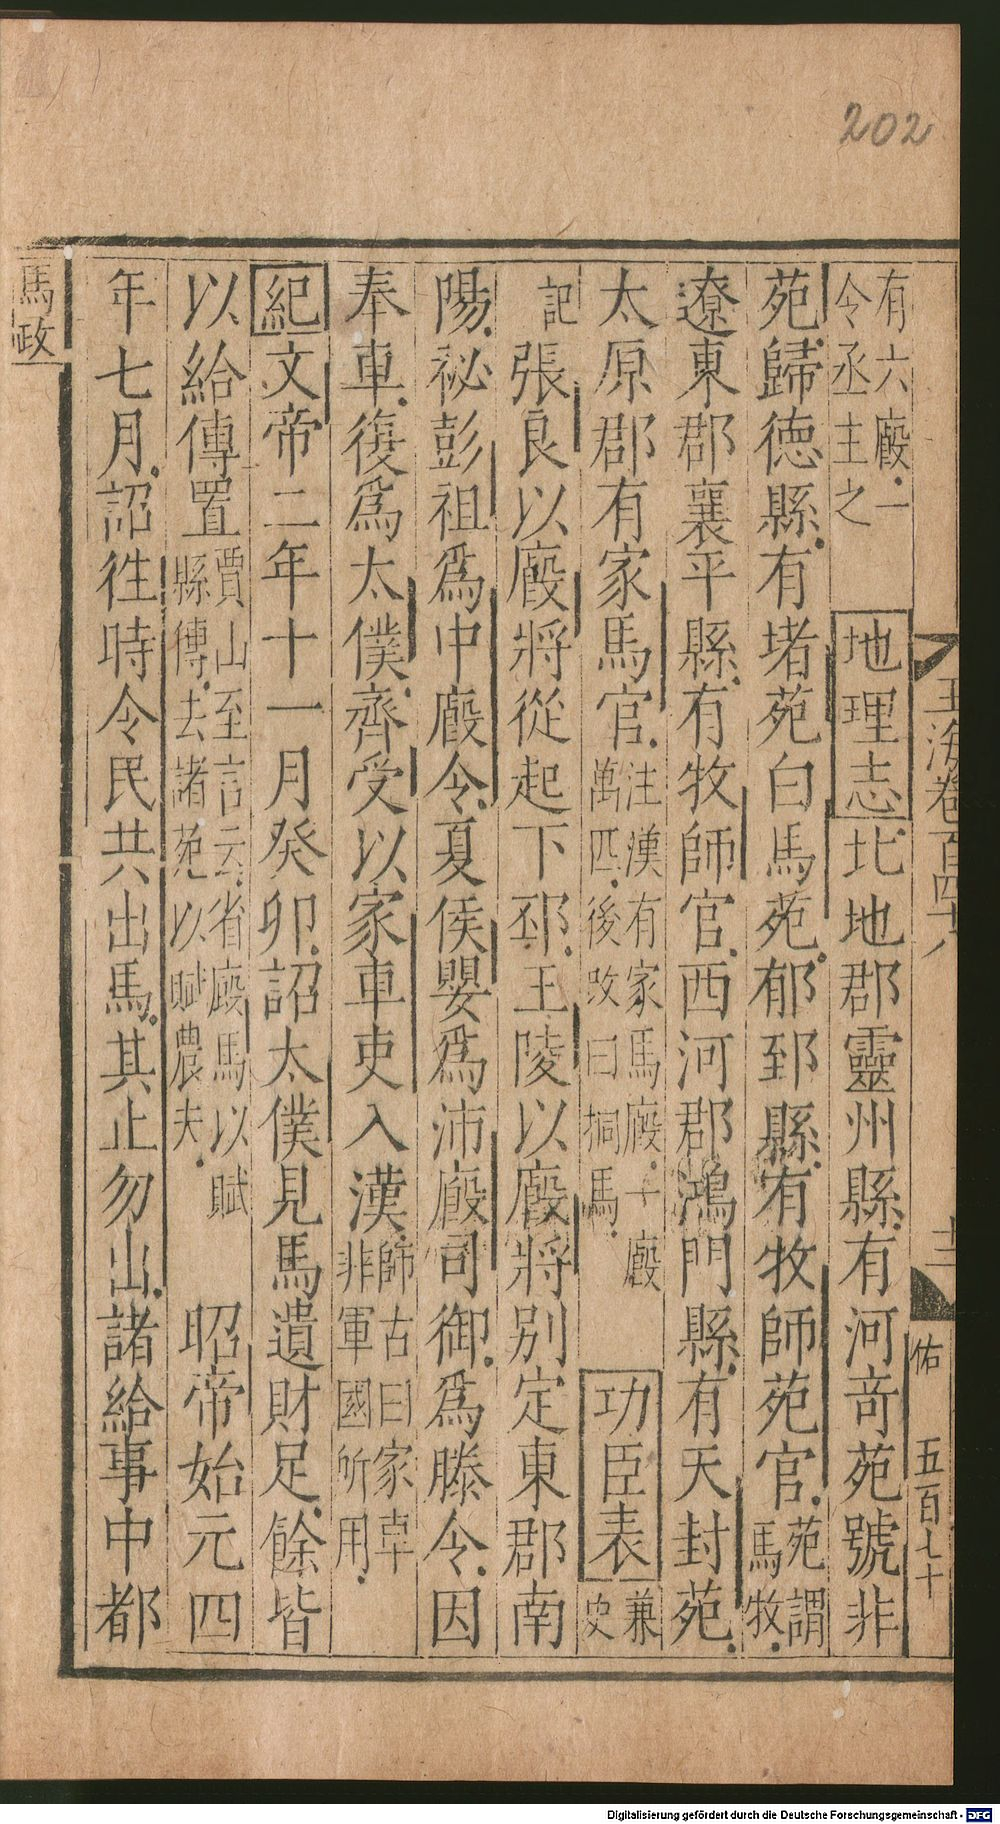 202
玉海卷百四十八
十二
佑 五百七十
有六廄一
令丞主之
地理志北地郡靈州縣有河奇苑號非
苑歸德縣有堵苑白馬苑郁郅縣有牧師苑官
苑謂
馬牧
遼東郡襄平縣有牧師官西河郡鴻門縣有天封苑
太原郡有家馬官
注漢有家馬廄一廄
萬匹後改曰挏馬
功臣表
兼
史
記
張良以廄將從起下邳王陵以廄將別定東郡南
陽祕彭祖爲中廄令夏侯嬰爲沛廄司御爲滕令因
奉車復爲太僕齊受以家車吏入漢
師古曰家車
非軍國所用
紀文帝二年十一月癸卯詔太僕見馬遺財足餘皆
以給傳置
賈山至言云省廄馬以賦
縣傳去諸苑以賦農夫
昭帝始元四
年七月詔往時令民共出馬其止勿出諸給事中都
馬政
Digitalisierung gefördert durch die Deutsche Forschungsgemeinschaft - DFG